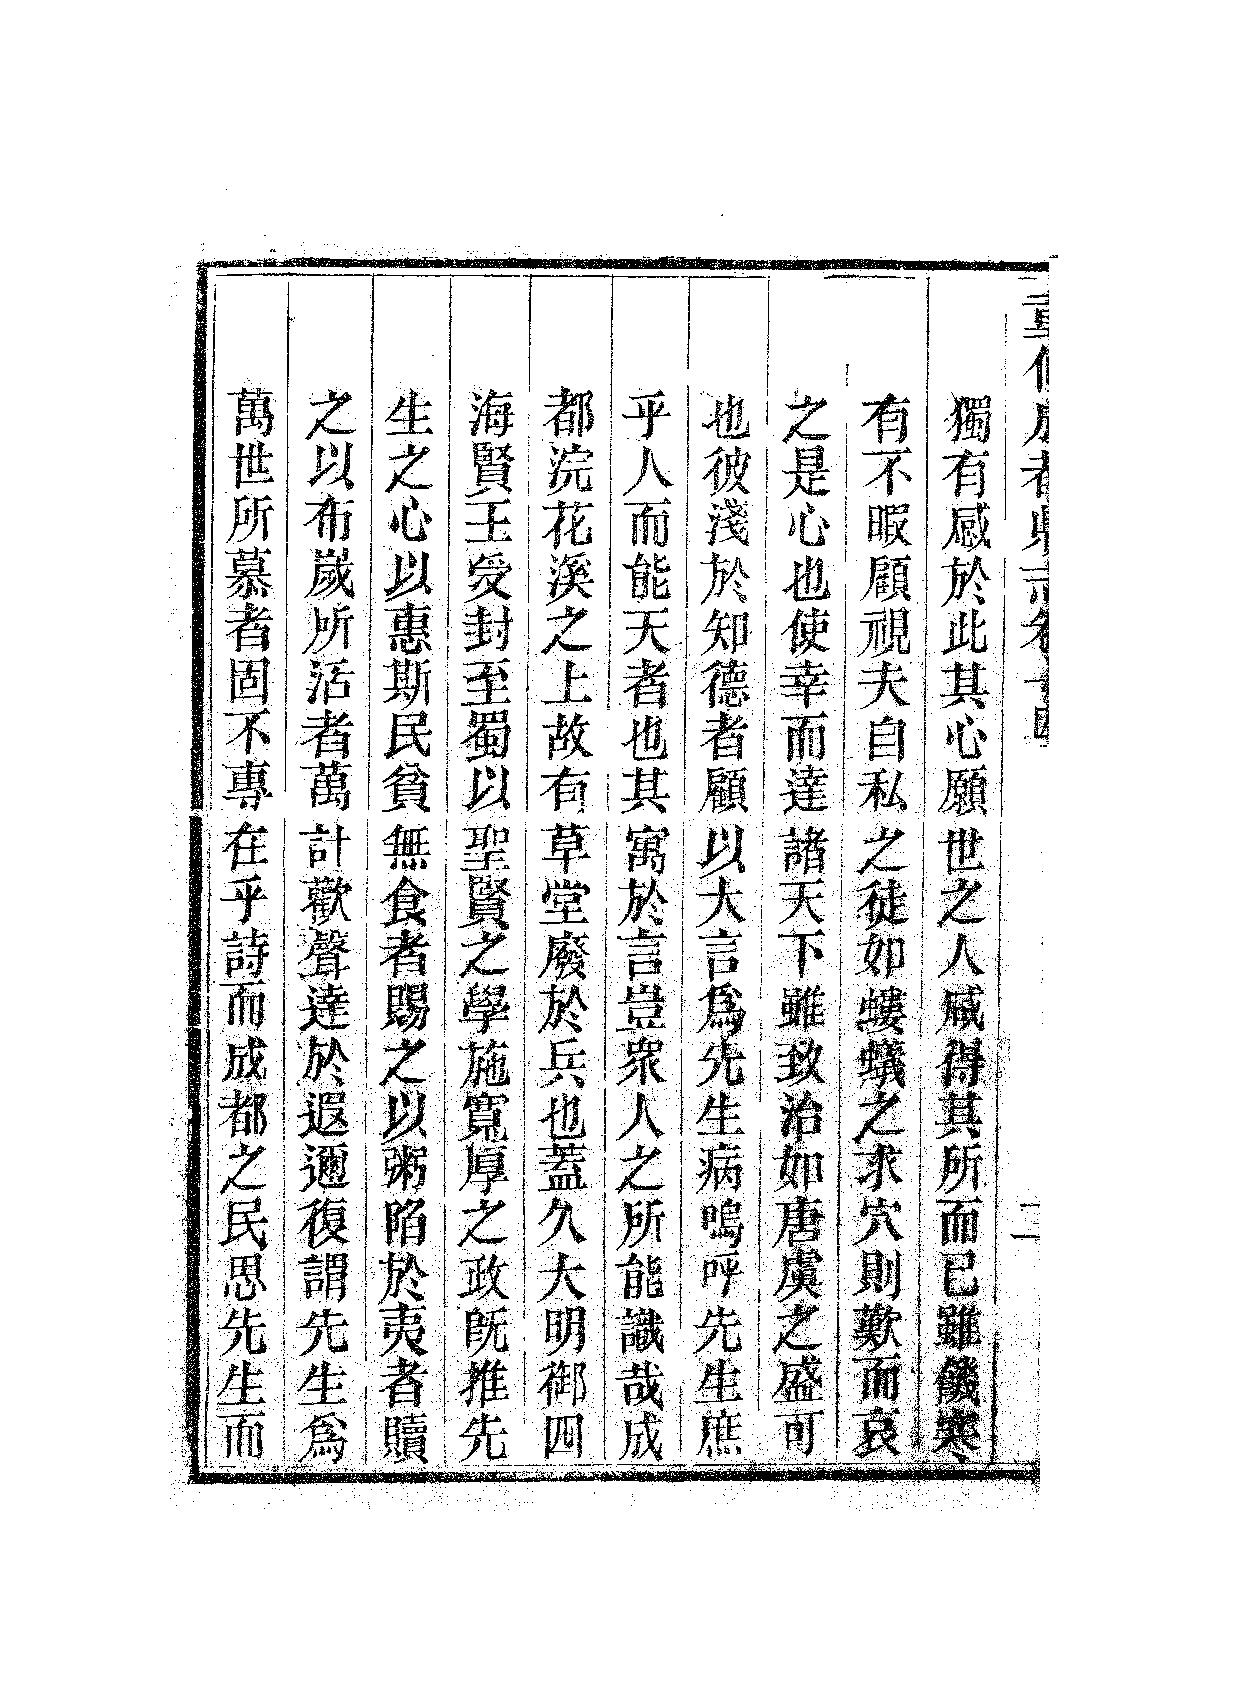 重修成都縣志卷十四
二
獨有感於此其心願世之人咸得其所而已雖饑寒
有不暇顧視夫自私之徒如螻蟻之求穴則歎而哀
之是心也使幸而達諸天下雖致治如唐虞之盛可
也彼淺於知德者顧以大言爲先生病嗚呼先生庶
乎人而能天者也其寓於言豈衆人之所能識哉成
都浣花溪之上故有草堂廢於兵也蓋久大明御四
海賢王受封至蜀以聖賢之學施寬厚之政旣推先
生之心以惠斯民貧無食者賜之以粥陷於夷者贖
之以布歲所活者萬計歡聲達於遐邇復謂先生爲
萬世所慕者固不專在乎詩而成都之民思先生而